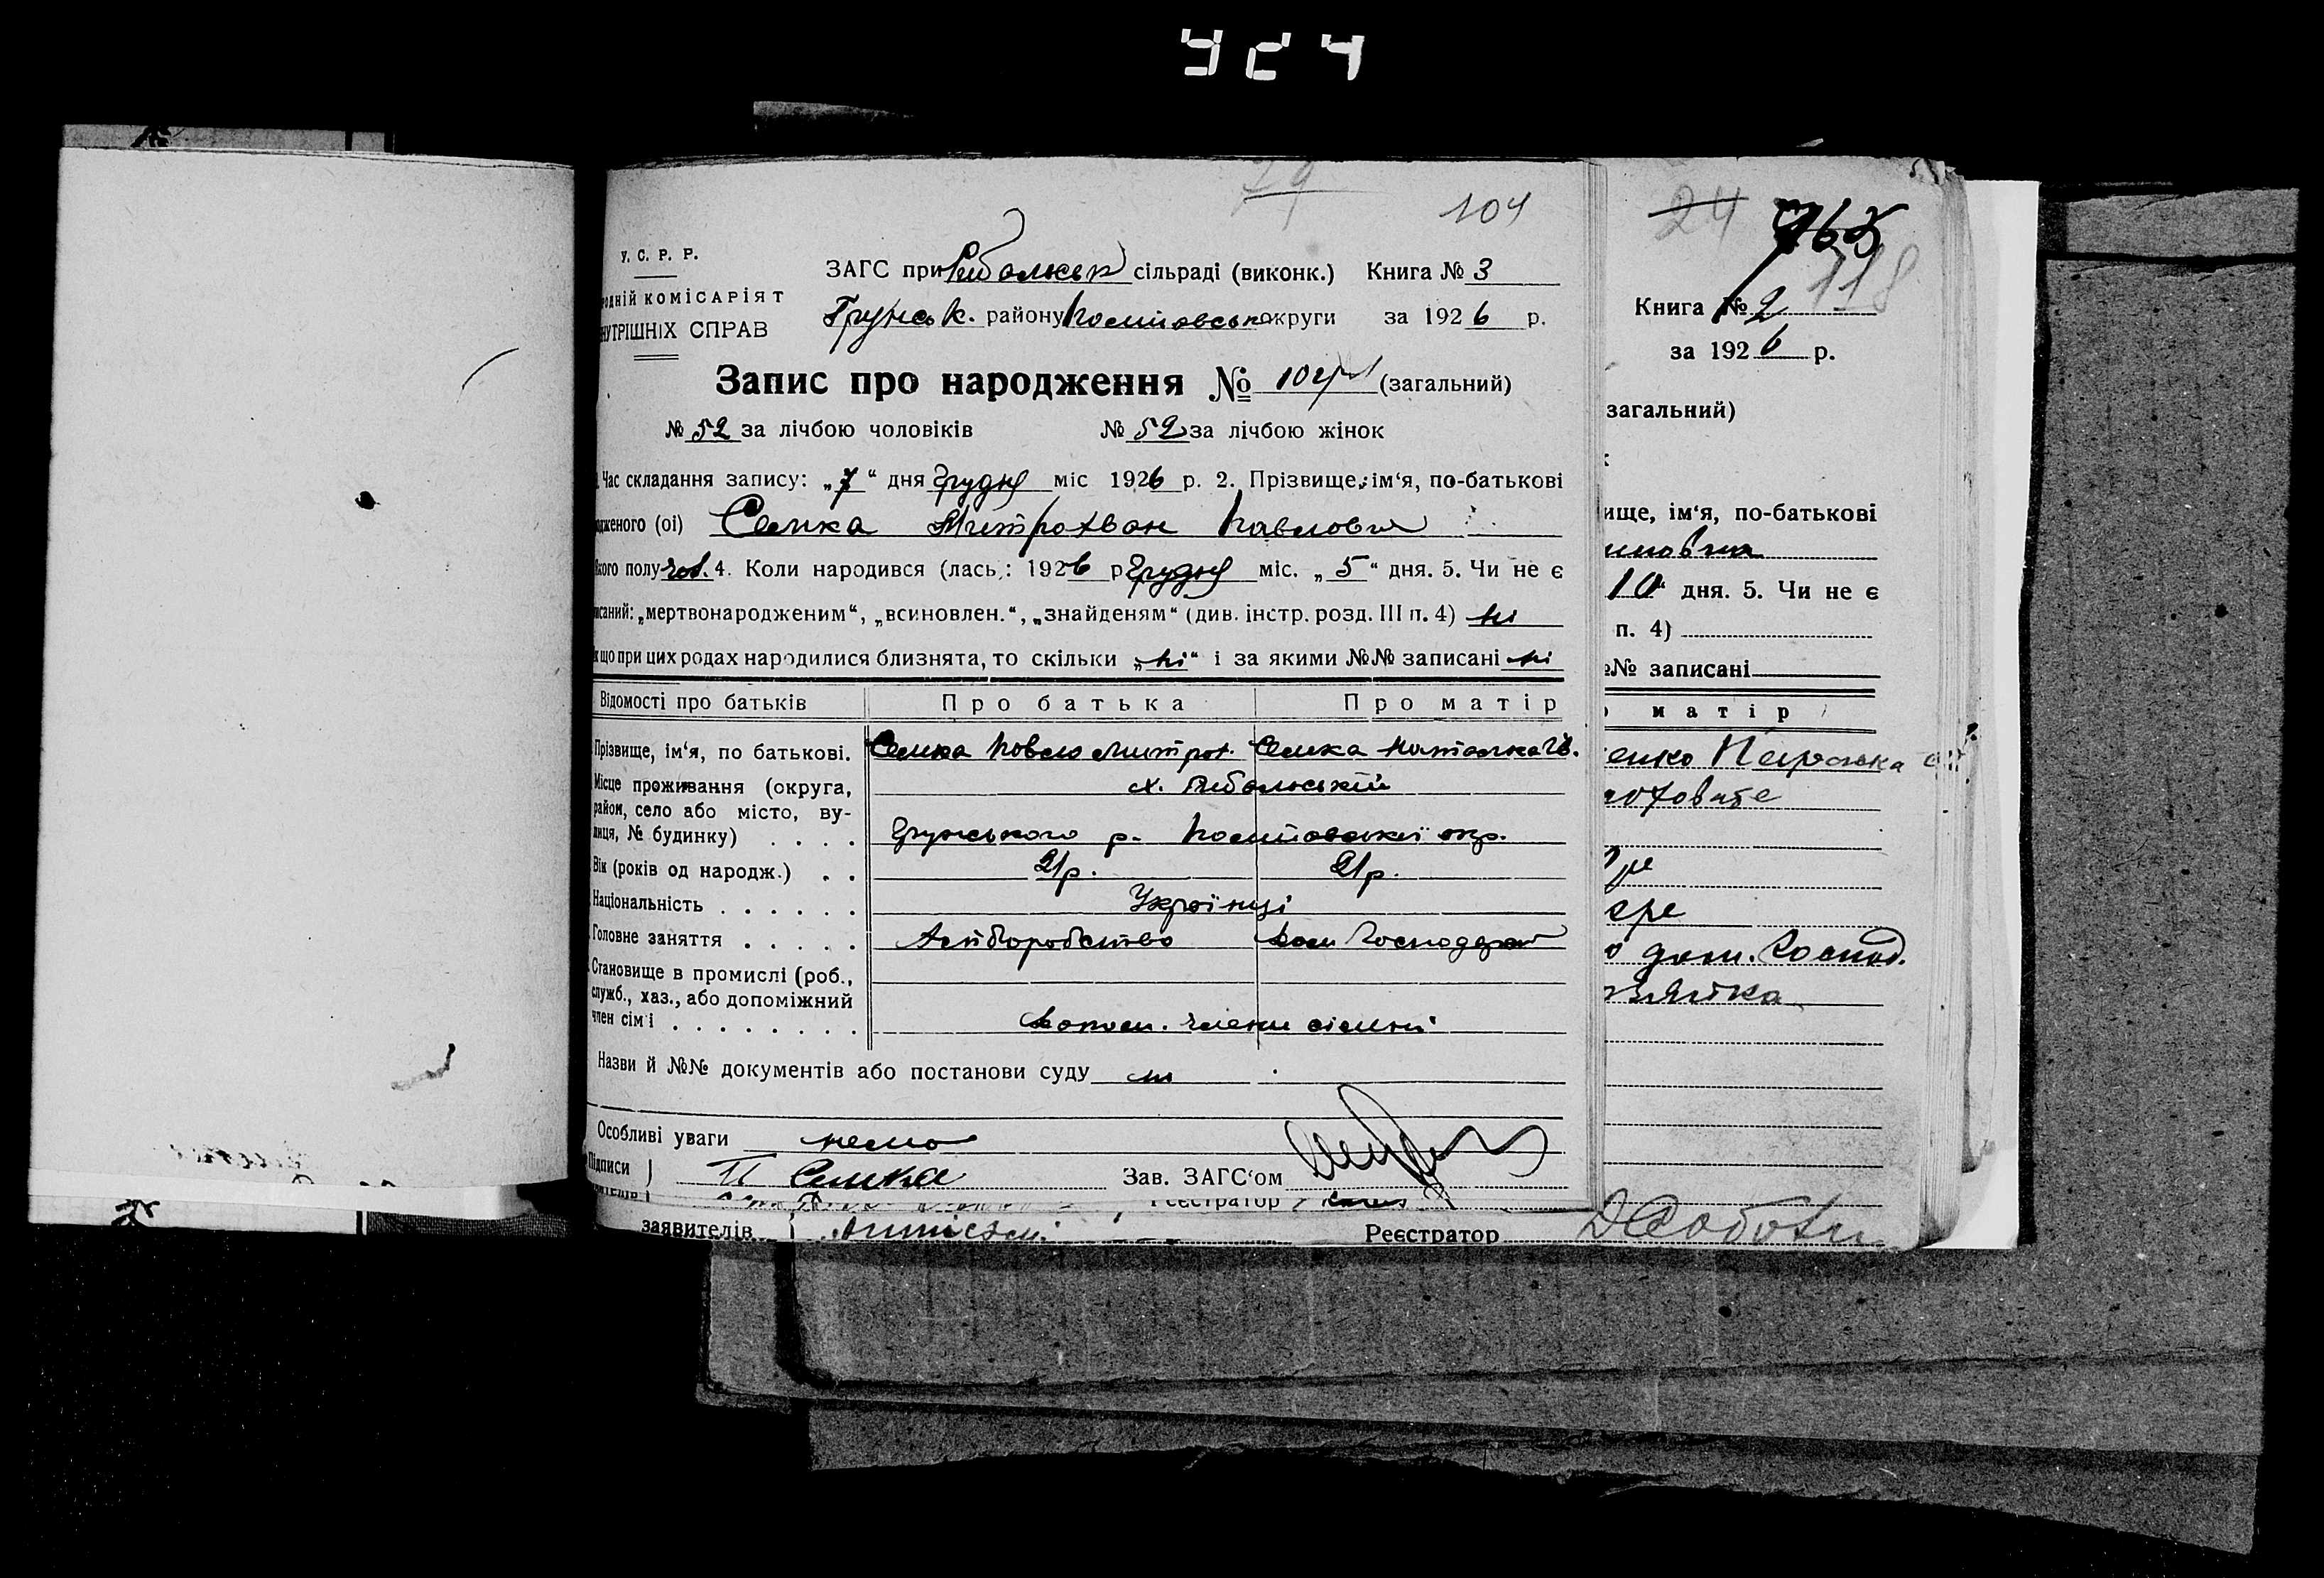 79
104
У. С. Р. Р.
ЗАГС при Рибальськ сільраді (виконк.) Книга № 3
родній КОМІСАРІЯТ
НУТРІШНІХ СПРАВ
Грунськ. району Полтавськ округи за 1926 р.
Запис про народження № 104 (загальний)
№ 52 за лічбою чоловіків № 52 за лічбою жінок
Час складання запису: „7“ дня Грудня міс 1926 р. 2. Прізвище, ім‘я, по-батькові
дженого (ої) Семка Митрохван Павлович
кого полу чол. 4. Коли народився (лась): 1926 р Грудня міс. „5“ дня. 5. Чи не є
исаний: „мертвонародженим“, „всиновлен.“, „знайденям“ (див. інстр. розд. III п. 4) ні
кщо при цих родах народилися близнята, то скільки „ні“ і за якими №№ записані ні
Відомості про батьків Про батька Про матір
Прізвище, ім‘я, по батькові. Семка Павло Митроф. Семка Наталка
Місце проживання (округа, район, село або місто, вулиця, № будинку) х. Рибальський
Грунського р. Полтавської окр.
Вік (років од народж.) 21 р. 21 р.
Національність Українці
Головне заняття Хліборобство Дом Господар
Становище в промислі (роб.,
служб., хаз., або допоміжний
член сім‘ї Допом. члени сімьи
Назви й №№ документів або постанови суду ні
Особливі уваги нема
Підписи П Семка Зав. ЗАГС‘ом
Реєстратор
заявителів Реєстратор
24 118
Книга № 2
за 1926 р.
загальний)
ище, ім‘я, по-батькові
10 дня. 5. Чи не є
п. 4)
№№ записані
о матір
енко
дом. Господ.